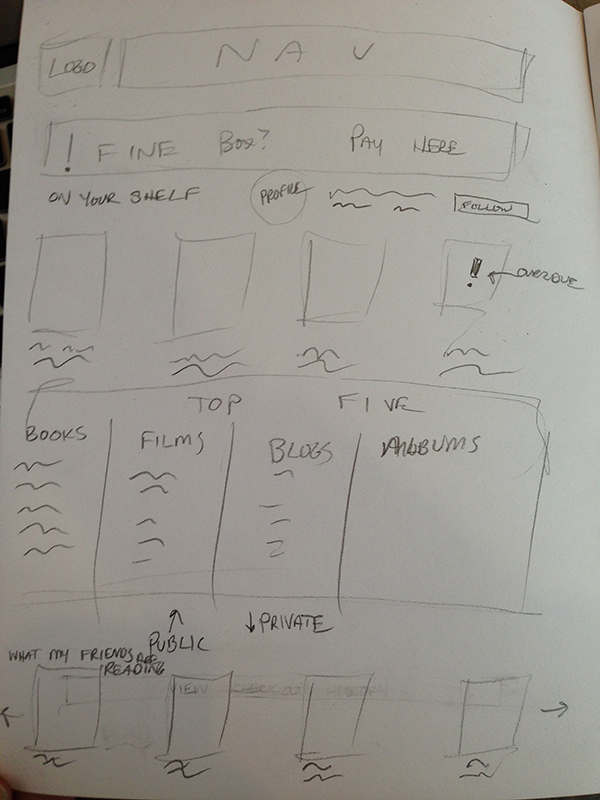 LOGO NAV
! FINE BOX? PAY HERE
ON YOUR SHELF PROFILE FOLLOW
! OVERDUE
TOP FIVE
BOOKS FILMS BLOGS ALBUMS
↑ PUBLIC ↓ PRIVATE
WHAT MY FRIENDS ARE
READING
VIEW CHECKOUT HISTORY